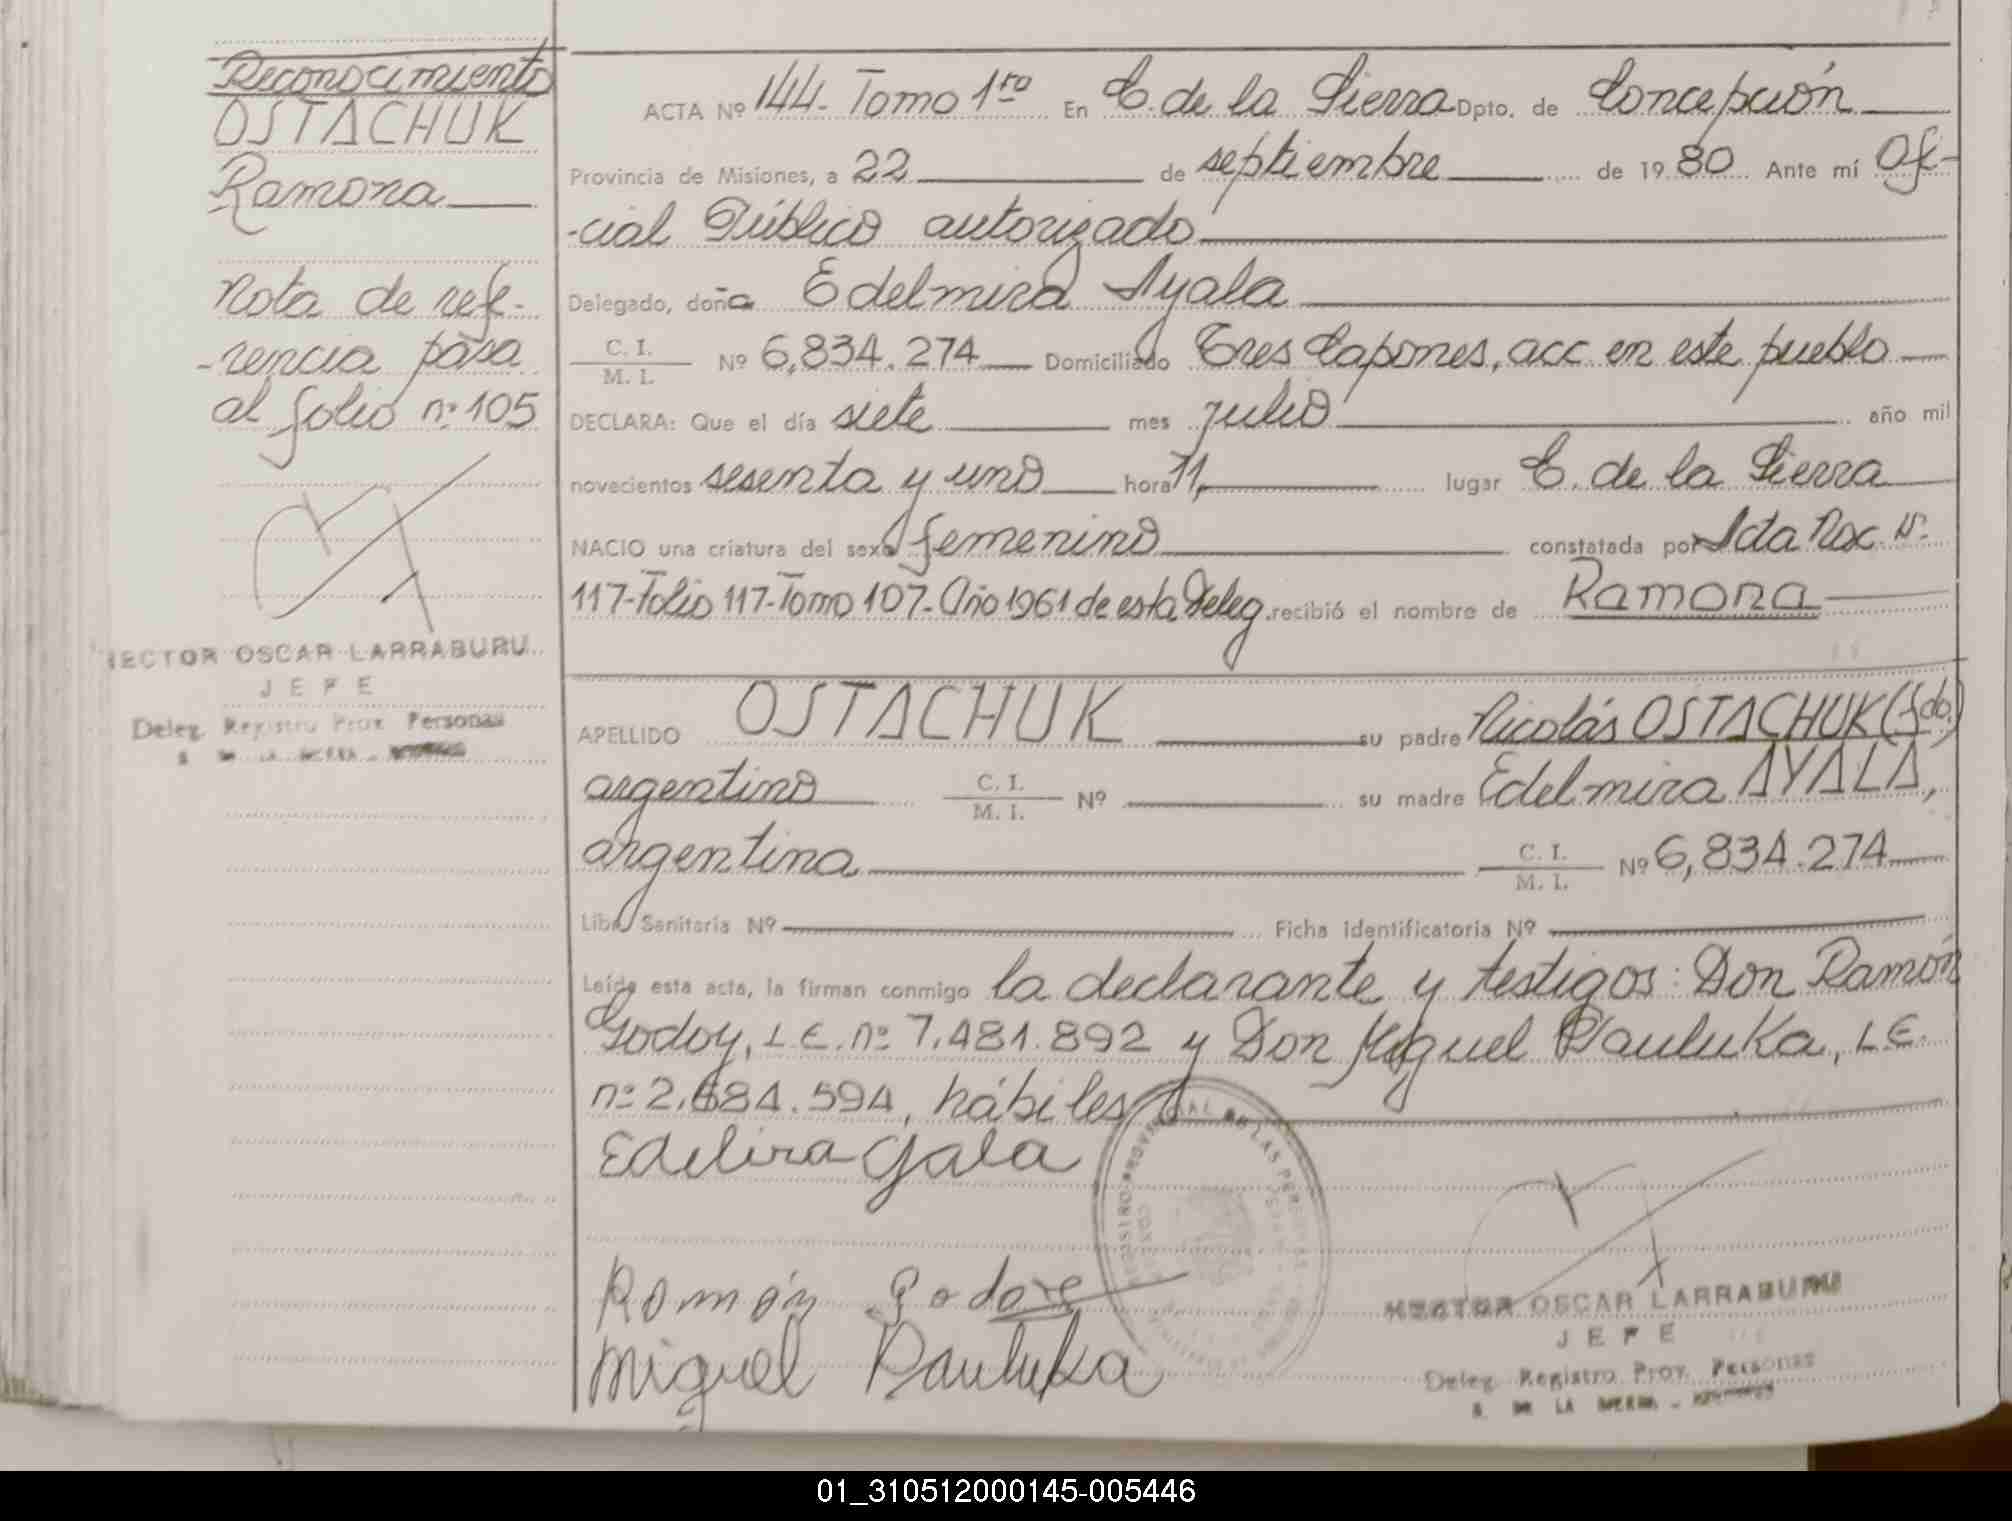 Reconocimiento
OSTACHUK
Ramona
Nota de refe-
-rencia pasa
al folio nº 105
HECTOR OSCAR LARRABURU
JEFE
Deleg. Registro Prov. Personas
DE LA SIERRA -
ACTA Nº 144. Tomo 1ro En C. de la Sierra Dpto. de Concepción
Provincia de Misiones, a 22 de septiembre de 1980 Ante mí Ofi-
-cial Público autorizado
Delegado, doña Edelmira Ayala
C. I.
M. I. Nº 6,834.274 Domiciliado Tres Capones, acc en este pueblo
DECLARA: Que el día siete mes julio año mil
novecientos sesenta y uno hora 11, lugar C. de la Sierra
NACIO una criatura del sexo femenino constatada por Acta Nac. Nº
117-Folio 117-Tomo 107-Año 1961 de esta Deleg. recibió el nombre de Ramona
APELLIDO OSTACHUK su padre Nicolás OSTACHUK (fdo.)
argentino C. I.
M. I. Nº su madre Edelmira AYALA,
argentina C. I.
M. I. Nº 6,834.274
Libr. Sanitaria Nº Ficha identificatoria Nº
Leída esta acta, la firman conmigo la declarante y testigos: Don Ramón
Godoy, L.E. nº 7.481.892 y Don Miguel Pauluka, L.E.
nº 2.684.594, hábiles
Edelira Yala
Ramón Godoy
Miguel Pauluka
REGISTRO PROVINCIAL DE LAS PERSONAS
HECTOR OSCAR LARRABURU
JEFE
Deleg. Registro Prov. Personas
DE LA SIERRA -
01_310512000145-005446